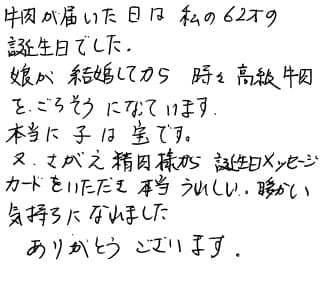 牛肉が届いた日は 私の62才の
誕生日でした.
娘が 結婚してから 時々高級牛肉
を.ごちそうになています.
本当に 子は 宝です。
又.さがえ精肉様から 誕生日メッセージ
カードをいただき 本当 うれしい.暖かい
気持ちに なれました
ありがとう ございます。